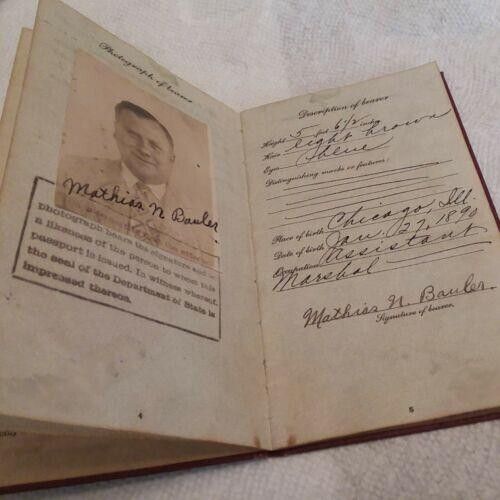 Photograph of bearer
Mathias N Bauler
photograph bears the signature and is
a likeness of the person to whom this
passport is issued. In witness whereof,
the seal of the Department of State is
impressed thereon.
4
Description of bearer
Height 5 feet 6 1/2 inches
Hair light brown
Eyes blue
Distinguishing marks or features:
Place of birth Chicago Ill
Date of birth Jan. 27, 1890
Occupation assistant
Marshal
Mathias N. Bauler.
Signature of bearer.
5